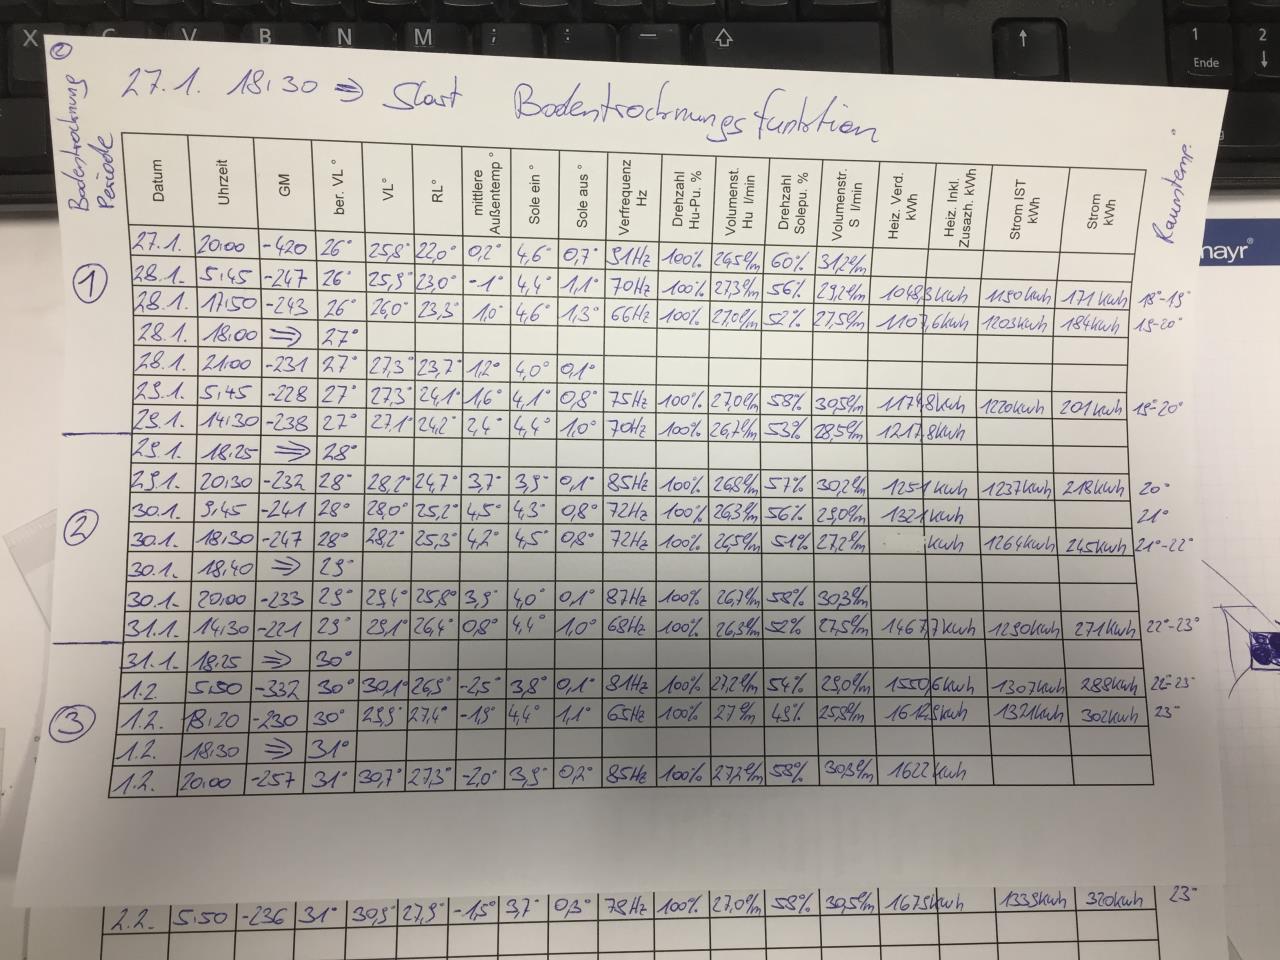 X C V B N M ; : _ ⇧ ↑ 1 Ende 2 ↓
②
27.1. 18:30 ⇒ Start Bodentrocknungsfunktion
Bodentrocknung Periode
Datum Uhrzeit GM ber. VL° VL° RL° mittlere Außentemp° Sole ein° Sole aus° Verfrequenz Hz Drehzahl Hu-Pu. % Volumenst. Hu l/min Drehzahl Solepu. % Volumenstr. S l/min Heiz. Verd. kWh Heiz. Inkl. Zusazh. kWh Strom IST kWh Strom kWh Raumtemp.°
nayr®
27.1. 20:00 -420 26° 25,8° 22,0° 0,2° 4,6° 0,7° 91Hz 100% 26,5l/m 60% 31,2l/m
① 28.1. 5:45 -247 26° 25,9° 23,0° -1° 4,4° 1,1° 70Hz 100% 27,3l/m 56% 29,2l/m 1048,3kwh 1190kwh 171kwh 18°-19°
28.1. 17:50 -243 26° 26,0° 23,3° 1,0° 4,6° 1,3° 66Hz 100% 27,0l/m 52% 27,5l/m 1107,6kwh 1203kwh 184kwh 19-20°
28.1. 18:00 ⇒ 27°
28.1. 21:00 -231 27° 27,3° 23,7° 1,2° 4,0° 0,1°
29.1. 5:45 -228 27° 27,3° 24,1° 1,6° 4,1° 0,8° 75Hz 100% 27,0l/m 58% 30,5l/m 1179,8kwh 1220kwh 201kwh 19°-20°
29.1. 14:30 -238 27° 27,1° 24,2° 2,4° 4,4° 1,0° 70Hz 100% 26,7l/m 53% 28,5l/m 1217,8kwh
29.1. 18:25 ⇒ 28°
29.1. 20:30 -232 28° 28,2° 24,7° 3,7° 3,9° 0,1° 85Hz 100% 26,8l/m 57% 30,2l/m 1251kwh 1237kwh 218kwh 20°
② 30.1. 9:45 -241 28° 28,0° 25,2° 4,5° 4,3° 0,8° 72Hz 100% 26,3l/m 56% 29,0l/m 1321kwh 21°
30.1. 18:30 -247 28° 28,2° 25,3° 4,2° 4,5° 0,8° 72Hz 100% 26,5l/m 51% 27,2l/m kwh 1264kwh 245kwh 21°-22°
30.1. 18:40 ⇒ 29°
30.1. 20:00 -233 29° 29,4° 25,8° 3,9° 4,0° 0,1° 87Hz 100% 26,7l/m 58% 30,3l/m
31.1. 14:30 -221 29° 29,1° 26,4° 0,8° 4,4° 1,0° 68Hz 100% 26,9l/m 52% 27,5l/m 1467,7kwh 1290kwh 271kwh 22°-23°
31.1. 18:25 ⇒ 30°
1.2. 5:50 -332 30° 30,1° 26,9° -2,5° 3,8° 0,1° 81Hz 100% 27,2l/m 54% 29,0l/m 1550,6kwh 1307kwh 288kwh 22°-23°
③ 1.2. 18:20 -230 30° 29,9° 27,4° -1,9° 4,4° 1,1° 65Hz 100% 27l/m 49% 25,9l/m 1612,9kwh 1321kwh 302kwh 23°
1.2. 18:30 ⇒ 31°
1.2. 20:00 -257 31° 30,7° 27,3° -2,0° 3,9° 0,2° 85Hz 100% 27,2l/m 58% 30,3l/m 1622kwh
2.2. 5:50 -236 31° 30,9° 27,9° -1,5° 3,7° 0,3° 78Hz 100% 27,0l/m 58% 30,5l/m 1675kwh 1339kwh 320kwh 23°